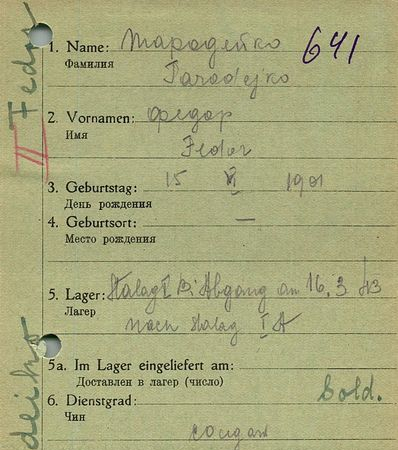 1. Name: Тарадейко 641
Фамилия
Taradejko
2. Vornamen: Федор
Имя
Fedor
3. Geburtstag: 15 VI 1901
День рождения
4. Geburtsort: —
Место рождения
5. Lager: Stalag I B: Abgang am 16.3 43
Лагерь
nach Stalag I A
5a. Im Lager eingeliefert am:
Доставлен в лагерь (число)
6. Dienstgrad: Sold.
Чин
солдат
II Fedor
deiko